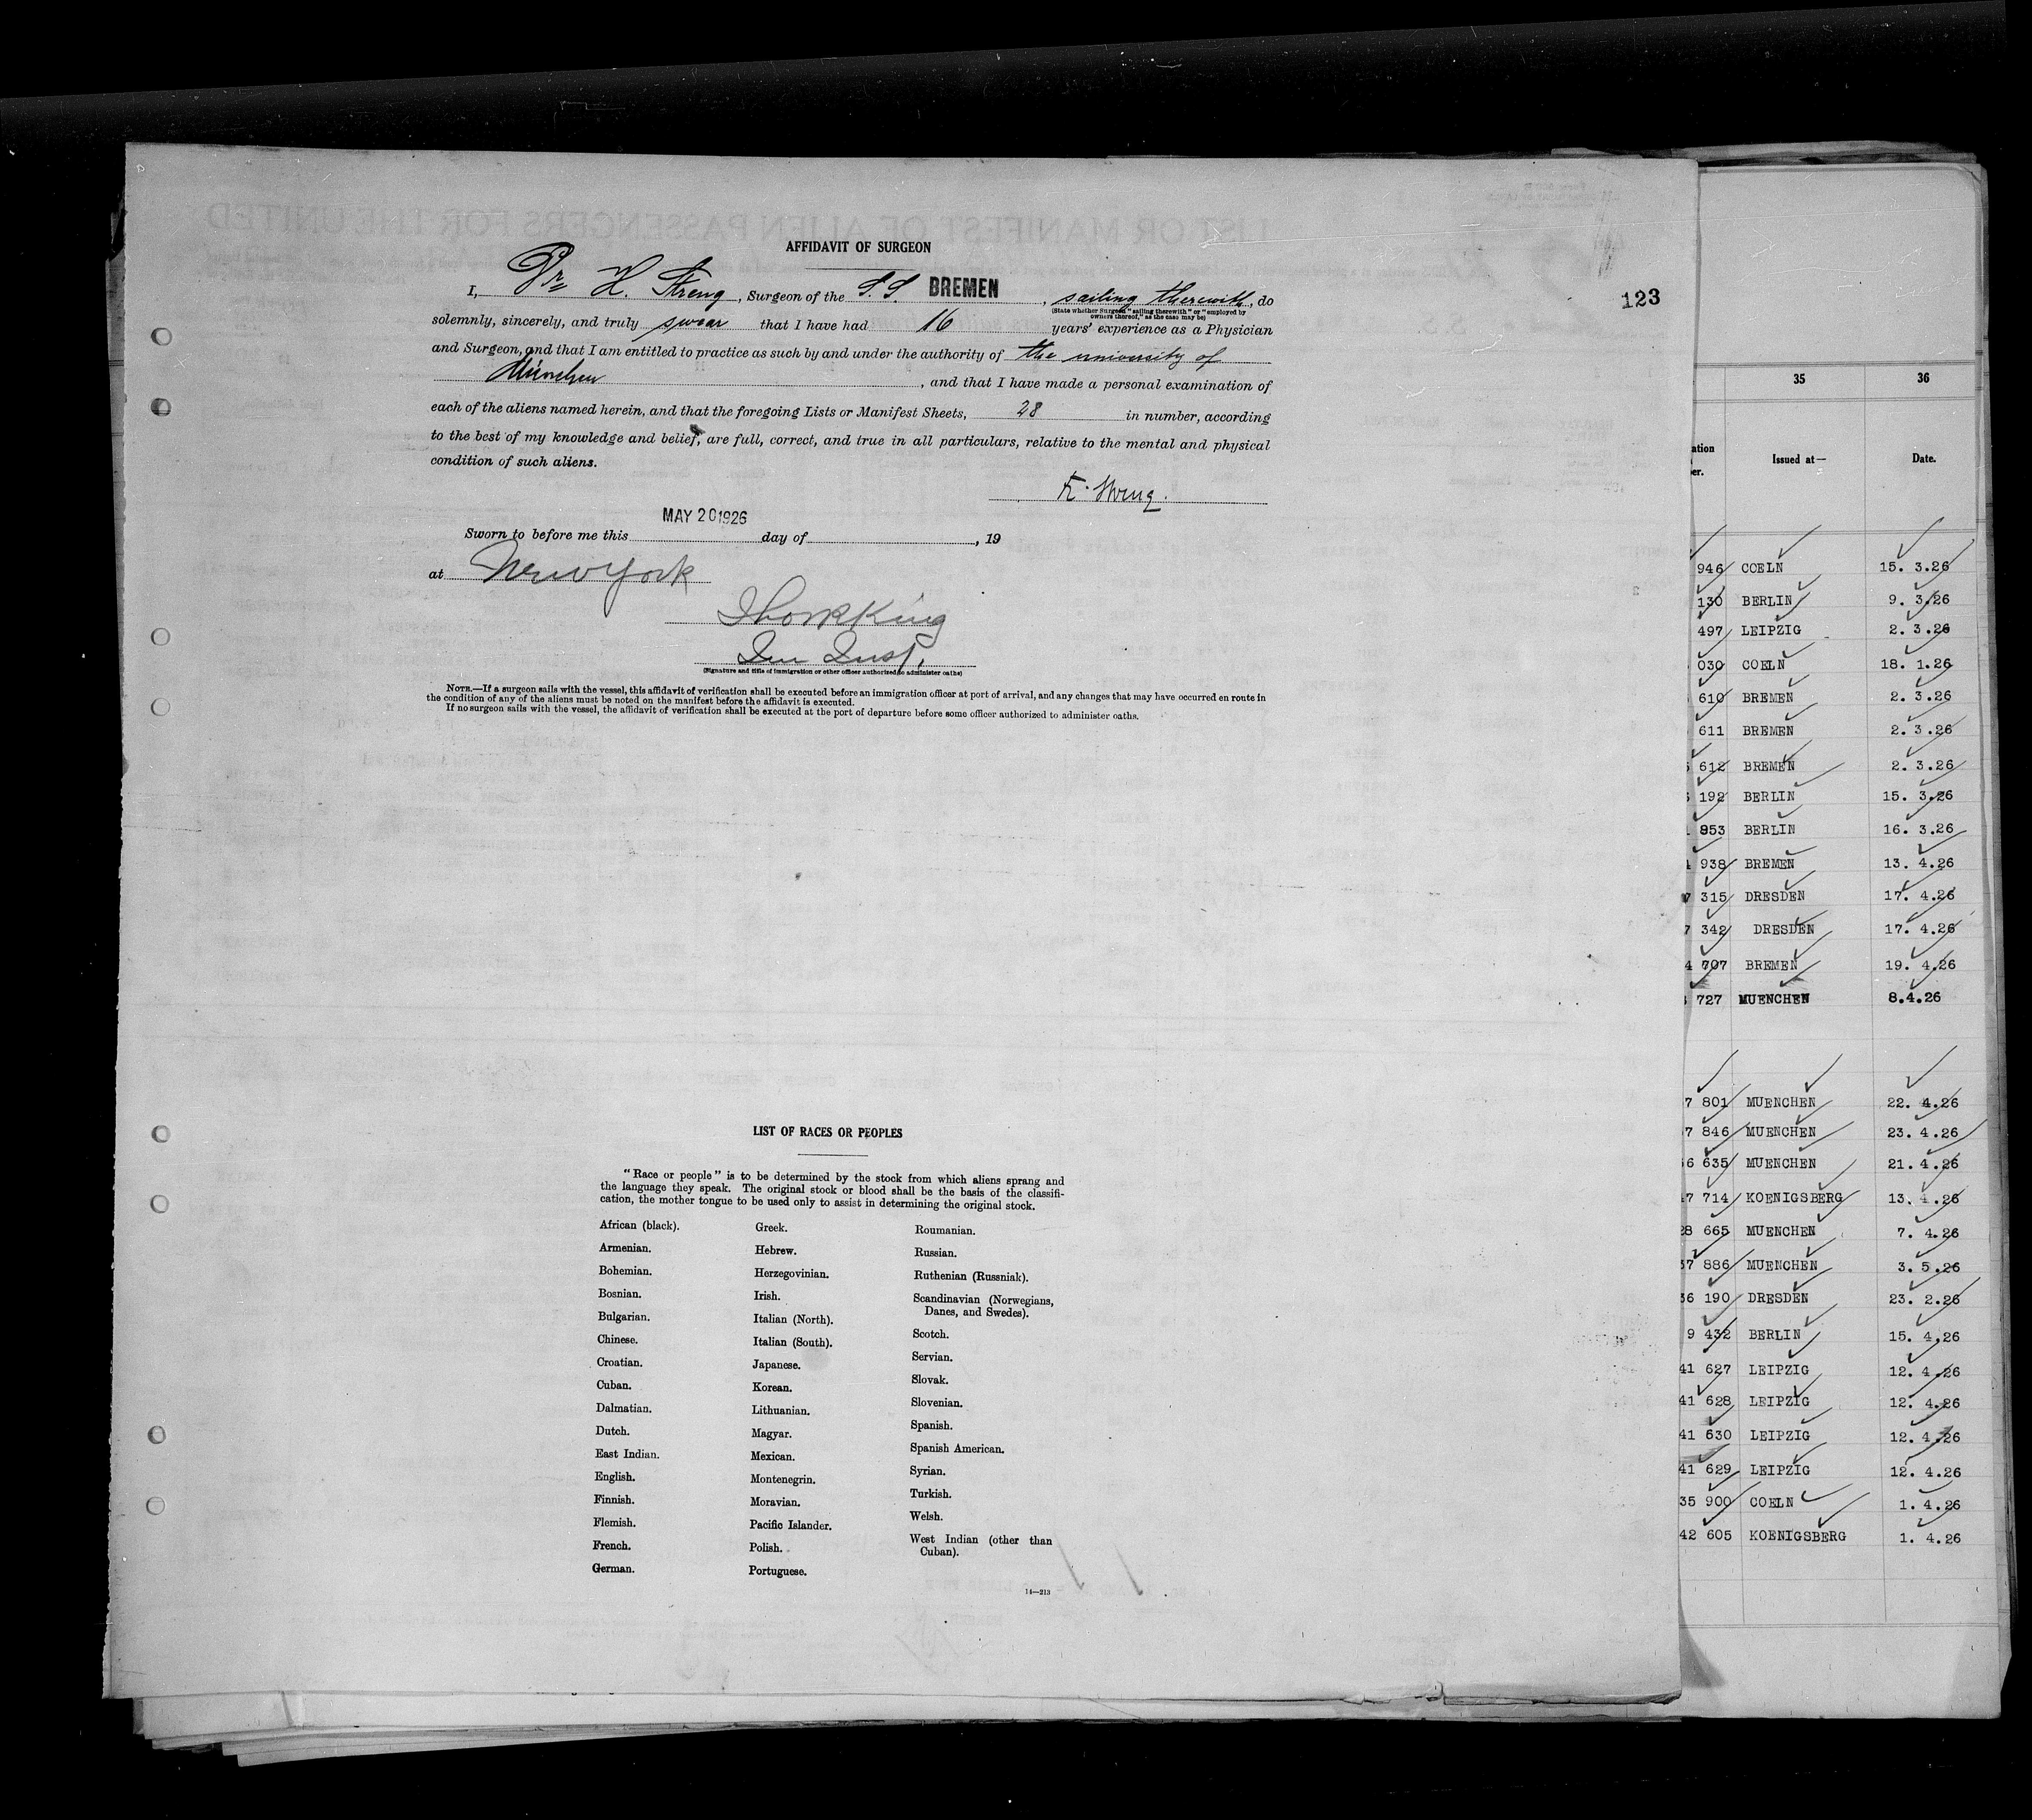 AFFIDAVIT OF SURGEON
I, Dr H. Streng, Surgeon of the S.S. BREMEN, sailing therewith, do
(State whether Surgeon "sailing therewith" or "employed by
owners thereof," as the case may be)
solemnly, sincerely, and truly swear that I have had 16 years' experience as a Physician
and Surgeon, and that I am entitled to practice as such by and under the authority of the university of
München, and that I have made a personal examination of
each of the aliens named herein, and that the foregoing Lists or Manifest Sheets, 28 in number, according
to the best of my knowledge and belief, are full, correct, and true in all particulars, relative to the mental and physical
condition of such aliens.
Streng.
Sworn to before me this MAY 20 1926 day of , 19
at New York
King
Im Insp.
(Signature and title of immigration or other officer authorized to administer oaths)
NOTE.—If a surgeon sails with the vessel, this affidavit of verification shall be executed before an immigration officer at port of arrival, and any changes that may have occurred en route in
the condition of any of the aliens must be noted on the manifest before the affidavit is executed.
If no surgeon sails with the vessel, the affidavit of verification shall be executed at the port of departure before some officer authorized to administer oaths.
123
LIST OF RACES OR PEOPLES
"Race or people" is to be determined by the stock from which aliens sprang and
the language they speak. The original stock or blood shall be the basis of the classifi-
cation, the mother tongue to be used only to assist in determining the original stock.
African (black).
Armenian.
Bohemian.
Bosnian.
Bulgarian.
Chinese.
Croatian.
Cuban.
Dalmatian.
Dutch.
East Indian.
English.
Finnish.
Flemish.
French.
German.
Greek.
Hebrew.
Herzegovinian.
Irish.
Italian (North).
Italian (South).
Japanese.
Korean.
Lithuanian.
Magyar.
Mexican.
Montenegrin.
Moravian.
Pacific Islander.
Polish.
Portuguese.
Roumanian.
Russian.
Ruthenian (Russniak).
Scandinavian (Norwegians,
Danes, and Swedes).
Scotch.
Servian.
Slovak.
Slovenian.
Spanish.
Spanish American.
Syrian.
Turkish.
Welsh.
West Indian (other than
Cuban).
14—213
35 36
Issued at— Date.
946 COELN 15. 3.26
130 BERLIN 9. 3.26
497 LEIPZIG 2. 3.26
030 COELN 18. 1.26
610 BREMEN 2. 3.26
611 BREMEN 2. 3.26
612 BREMEN 2. 3.26
192 BERLIN 15. 3.26
853 BERLIN 16. 3.26
938 BREMEN 13. 4.26
315 DRESDEN 17. 4.26
7 342 DRESDEN 17. 4.26
4 707 BREMEN 19. 4.26
727 MUENCHEN 8.4.26
7 801 MUENCHEN 22. 4.26
7 846 MUENCHEN 23. 4.26
6 635 MUENCHEN 21. 4.26
7 714 KOENIGSBERG 13. 4.26
8 665 MUENCHEN 7. 4.26
37 886 MUENCHEN 3. 5.26
36 190 DRESDEN 23. 2.26
9 432 BERLIN 15. 4.26
41 627 LEIPZIG 12. 4.26
41 628 LEIPZIG 12. 4.26
41 630 LEIPZIG 12. 4.26
41 629 LEIPZIG 12. 4.26
35 900 COELN 1. 4.26
42 605 KOENIGSBERG 1. 4.26